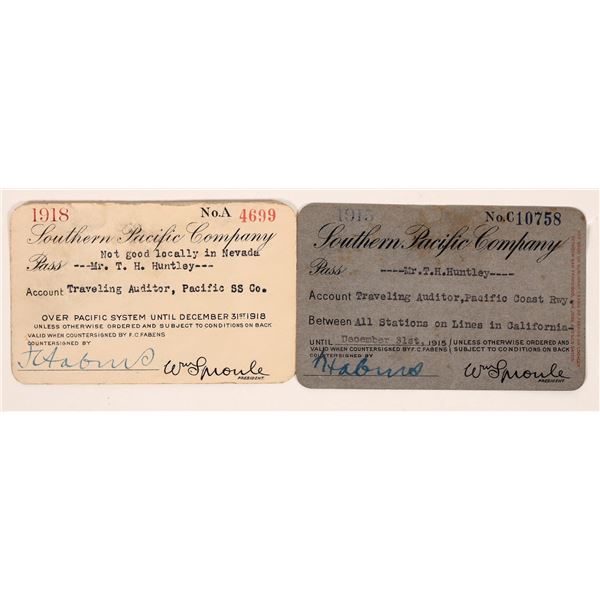 1918 No.A 4699
Southern Pacific Company
Not good locally in Nevada
Pass ---Mr. T. H. Huntley---
Account Traveling Auditor, Pacific SS Co.
OVER PACIFIC SYSTEM UNTIL DECEMBER 31ST 1918
UNLESS OTHERWISE ORDERED AND SUBJECT TO CONDITIONS ON BACK
VALID WHEN COUNTERSIGNED BY F. C. FABENS
COUNTERSIGNED BY
Wm Sproule
PRESIDENT.
1915 No.C10758
Southern Pacific Company
Pass -----Mr.T.H.Huntley-----
Account Traveling Auditor,Pacific Coast Rwy.
Between All Stations on Lines in California-
UNTIL December 31st, 1915 UNLESS OTHERWISE ORDERED AND
VALID WHEN COUNTERSIGNED BY F. C. FABENS SUBJECT TO CONDITIONS ON BACK
COUNTERSIGNED BY
Wm Sproule
PRESIDENT.